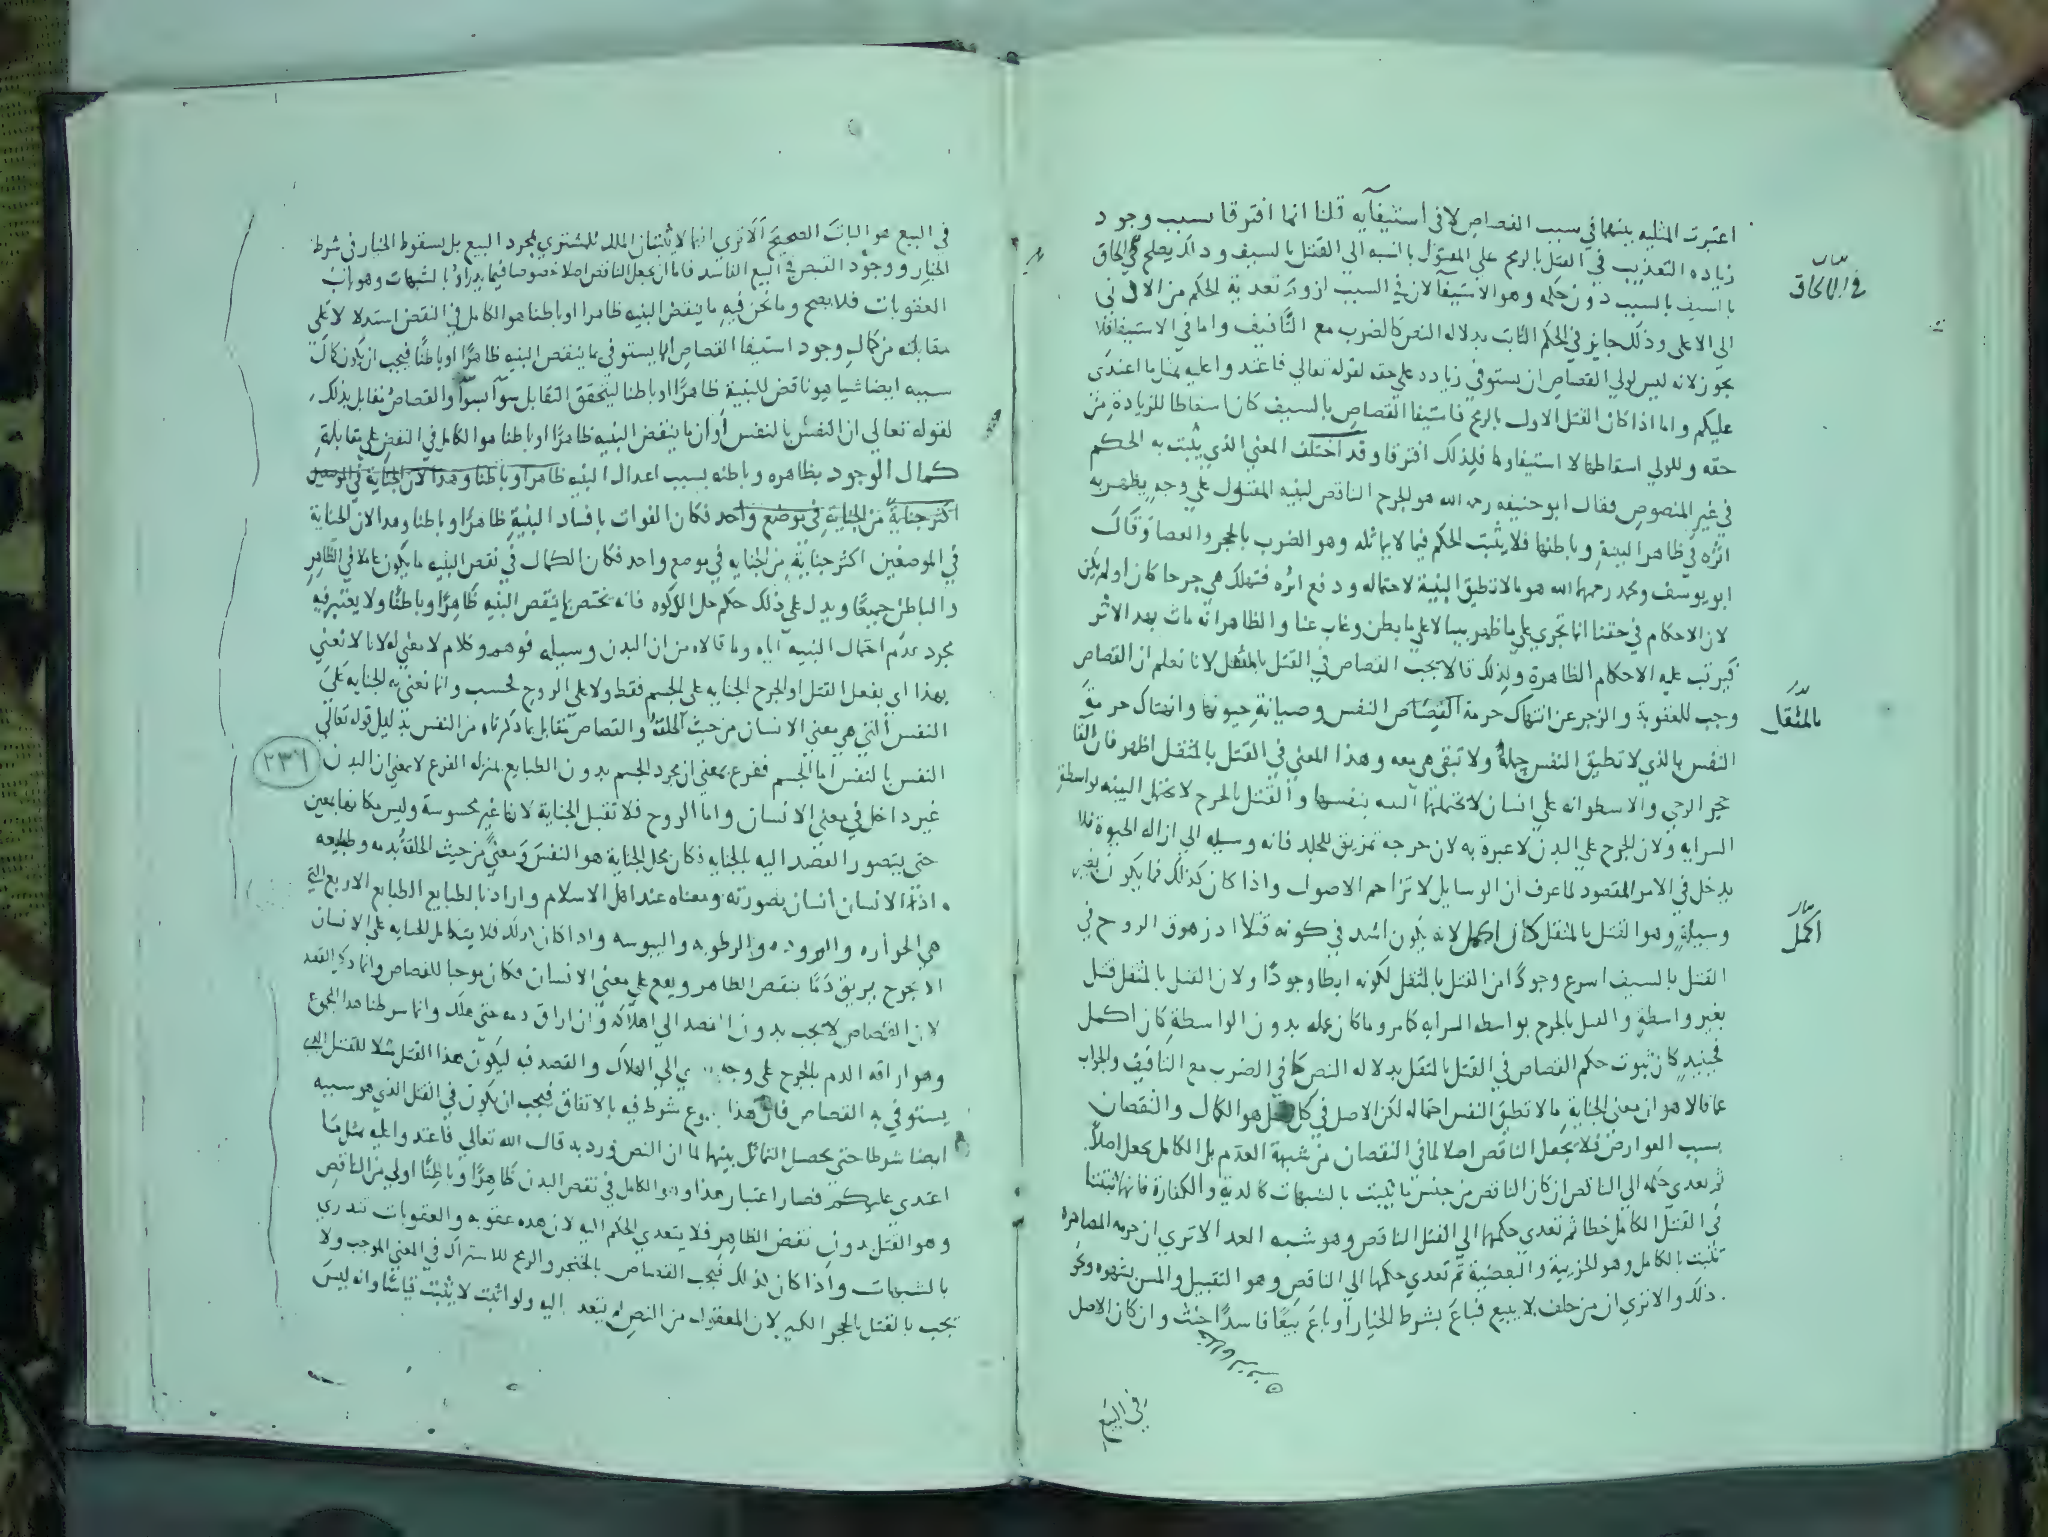 اعتبرت المثليه بينهما في سبب القصاص لا في استيفآيه قلنا انما افترقا بسبب وجود
زياده التعذيب في القتل بالرمح علي المقتول بالنسبه الي القتل بالسيف وذلك يصلح في الحاق
بالسيف بالسبب دون حكمه وهو الاستيفآ لان في السبب از وتر تعدية الحكم من الادني
الي الاعلي وذلك جايز في الحكم الثابت بدلاله النص كالضرب مع التافيف واما في الاستيفا فلا
يجوز لانه ليس لولي القصاص ان يستوفي زيادة علي حقه لقوله تعالي فاعتدوا عليه بمثل ما اعتدى
عليكم واما اذا كان القتل الاول بالرمح فاستيفا القصاص بالسيف كان اسقاطا للزيادة من
حقه وللولي اسقاطها لا استيفاوها فلذلك افترقا وقد اختلف المعني الذي يثبت به الحكم
في غير المنصوص فقال ابو حنيفه رحمه الله هو الجرح الناقص لبنيه المقتول علي وجه يظهر به
اثره في ظاهر البنية وباطنها فلا يثبت الحكم فيما لا يماثله وهو الضرب بالحجر والعصا وقال
ابو يوسف ومحمد رحمهما الله هو ما لا تطيق البنية لاحتماله ودفع اثره فتهلك هي جرحا كان او لم يكن
لان الاحكام في حقنا انما تجري علي ما ظهر بيبا لا علي ما بطن وغاب عنا والظاهر انه مات بهذا الاثر
فيرتب عليه الاحكام الظاهرة ولذلك قالا يجب القصاص في القتل بالمثقل لانا نعلم ان القصاص
وجب للعقوبة والزجر عن انتهاك حرمة القصاص النفس وصيانة حيوتها وانتهاك حرمة
النفس بالذي لا تطيق النفس حمله ولا تبقي هي معه وهذا المعني في القتل بالمثقل اظهر فان القا
حجر الرحي والاسطوانه علي انسان لا تحتملها البنيه بنفسها والقتل بالجرح لا تحتمل البنيه بواسطة
السرايه ولان الجرح علي البدن لا عبرة به لان جرحه تمزيق للجلد فانه وسيله الي ازاله الحيوة فلا
يدخل في الامر المقصود لما عرف ان الوسايل لا تزاحم الاصول واذا كان كذلك فما يكون بغير
وسيلة وهو القتل بالمثقل كان اكمل لانه يكون اشد في كونه قتلا اذ زهوق الروح في
القتل بالسيف اسرع وجودا من القتل بالمثقل لكونه ابطا وجودًا ولان القتل بالمثقل قتل
بغير واسطة والقتل بالجرح بواسطه السرايه كما مر وما كان عمله بدون الواسطة كان اكمل
فحينيذ كان ثبوت حكم القصاص في القتل بالمثقل بدلاله النص كما في الضرب مع التافيف والجواب
عما قالا هو ان معني الجناية ما لا تطيق النفس احتماله لكن الاصل في كل فعل هو الكمال والنقصان
بسبب العوارض فلا يجعل الناقص اصلا لما في النقصان من شبهة العدم بل الكامل يجعل اصلاً
ثم تعدي حكمه الي الناقص ان كان الناقص من جنس ما يثبت بالشبهات كالدية والكفارة فانها ثبتتا
في القتل الكامل خطا ثم تعدي حكمهما الي القتل الناقص وهو شبه العمد الا تري ان حرمه المصاهرة
تثبت بالكامل وهو الجزيية والبعضية ثم تعدي حكمها الي الناقص وهو التقبيل والمس بشهوه ونحو
ذلك والا تري ان من حلف لا يبيع فباع بشرط الخيار او باع بيعًا فاسدًا حنث وان كان الاصل
في البيع
في الالحاق
بالمثقل
اكمل
في البيع هو البات الصحيح الا تري انهما لا يثبتان الملك للمشتري بمجرد البيع بل بسقوط الخيار في شرط
الخيار ووجود القبض في البيع الفاسد فاما ان يجعل الناقص اصلا خصوصا فيما يدراء بالشبهات وهو باب
العقوبات فلا يصح وما نحن فيه ما ينقض البنيه ظاهرا او باطنا هو الكامل في النقض استدلالا علي
مقابلته من كمال وجود استيفا القصاص انما يستوفي بما ينقص البنيه ظاهرًا او باطنًا فيجب ان يكون كمال
سببه ايضا شيا هو ناقض للبنية ظاهرًا او باطنا ليتحقق التقابل سوآ بسوآ والقصاص تقابل بذلك
لقوله تعالي ان النفس بالنفس او ان ما ينقض البنيه ظاهرًا او باطنا هو الكامل في النقض علي مقابلة
كمال الوجود بظاهره وباطنه بسبب اعدال البنيه ظاهرا وباطنا وهذا لان الجناية في الموضعين
اكثر جناية من الجناية في موضع واحد فكان الفوات بافساد البنية ظاهرًا وباطنا وهذا لان الجناية
في الموضعين اكثر جناية من الجنايه في موضع واحد فكان الكمال في نقص البنيه ما يكون عاملا في الظاهر
والباطن جميعًا ويدل علي ذلك حكم حل الذكوه فانه يختص بما ينقص البنيه ظاهرًا وباطنًا ولا يعتبر فيه
مجرد عدم احتمال البنيه اياه وما قالاه من ان البدن وسيله فوهم وكلام لا معني له لانا لا نعني
بهذا اي بفعل القتل او الجرح الجنايه علي الجسم فقط ولا علي الروح فحسب وانما نعني به الجنايه علي
النفس التي هي معني الانسان من حيث الخلقة والقصاص يتقابل بما ذكرناه من النفس بدليل قوله تعالي
النفس بالنفس اما الجسم ففرع بمعني ان مجرد الجسم بدون الطبايع بمنزله الفرع لا بمعني ان البدن
غير داخل في معني الانسان واما الروح فلا تقبل الجناية لانها غير محسوسة وليس مكانها بمعين
حتي يتصور القصد اليه بالجنايه فكان محل الجناية هو النفس ومعني من حيث الخلقة بدمه وطبايعه
اذ الانسان انسان بصورته ومعناه عند اهل الاسلام واراد بالطبايع الطبايع الاربع التي
هي الحراره والبروده والرطوبه واليبوسه واذا كان كذلك فلا يتكامل الجنايه علي الانسان
الا بجرح يريق دمًا ينقص الظاهر ويقع علي معني الانسان فكان موجبا للقصاص وانما ذكر القصد
لان القصاص لا يجب بدون القصد الي اهلاكه وان اراق دمه حتي هلك وانما شرطنا هذا المجموع
وهو اراقه الدم بالجرح علي وجه ي الي الهلاك والقصد فيه ليكون هذا القتل مثلا للقتل الذي
يستوفي به القصاص فان هذا وع شرط فيه بالاتفاق فيجب ان يكون في القتل الذي هو سببه
ايضا شرطا حتي يحصل التماثل بينهما لما ان النص ورد به قال الله تعالي فاعتدوا عليه بمثل ما
اعتدي عليكم فصار اعتبار هذا وهو الكامل في نقص البدن ظاهرًا وباطنًا اولي من الناقص
وهو القتل بدون نقض الظاهر فلا يتعدي الحكم اليه لان هذه عقوبه والعقوبات تندري
بالشبهات واذا كان لذلك فيجب القصاص بالخنجر والرمح للاشتراك في المعني الموجب ولا
يجب بالقتل بالحجر الكبير لان المعقول من النص لم يتعد اليه ولو اثبت لا يثبت قياسًا وانه ليس
٢٣٦